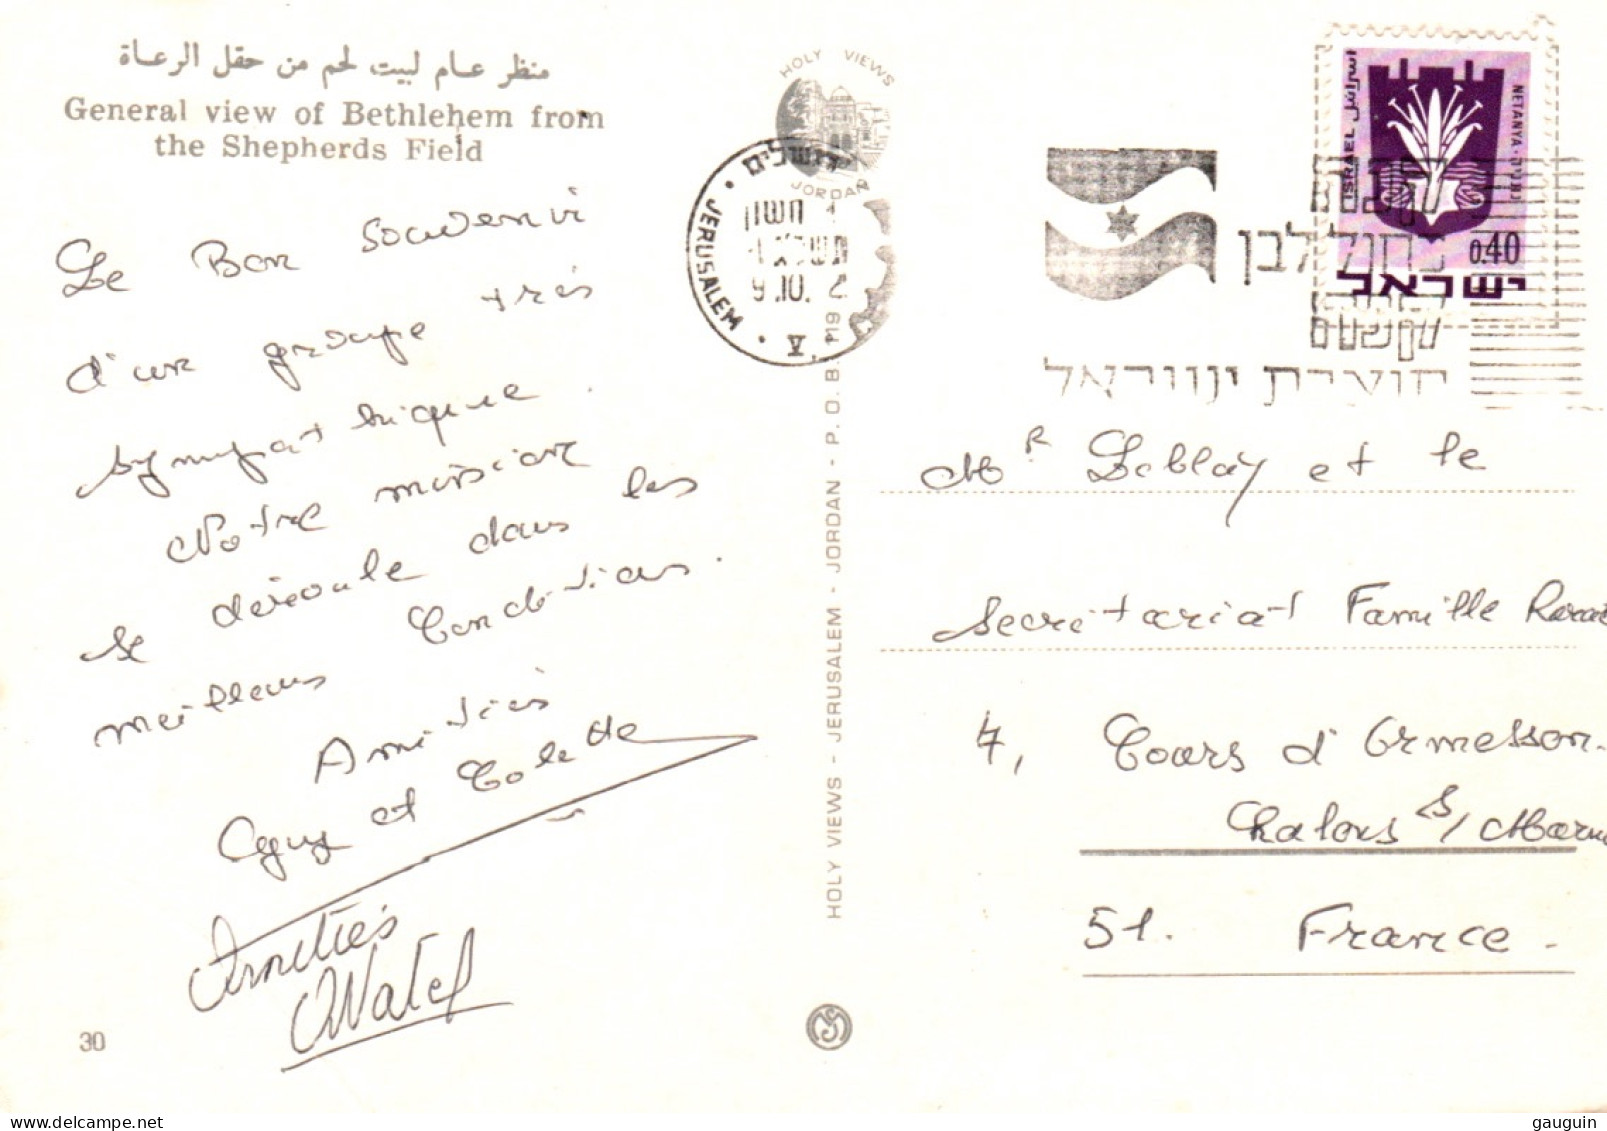 منظر عام لبيت لحم من حقل الرعاة
General view of Bethlehem from
the Shepherds Field
Le Bon souvenir
d'un groupe très
sympathique.
Notre mission
se déroule dans les
meilleurs conditions.
Amitiés
Guy et Colette
Amitiés
30
HOLY VIEWS
JORDAN
ירושלים
JERUSALEM
9.10.
V
HOLY VIEWS - JERUSALEM - JORDAN - P. O. B. 19
כחול לבן
תוצרת ישראל
اسرائيل
ISRAEL
NETANYA · נתניה
0.40
ישראל
Mr Leblay et le
Secretariat Famille
4, Cours d'Ormesson.
Chalons s/ Marne
51. France.
gauguin © www.delcampe.net